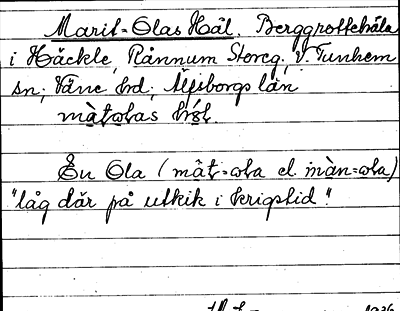 Marit-Olas Hål. Berggrottehåla
i Häckle, Rånnum Storeg., V. Tunhem
sn; Väne hrd, Älfsborgs län
En Ola (måt-ola el. màn=ola)
"låg där på utkik i krigstid"
1936